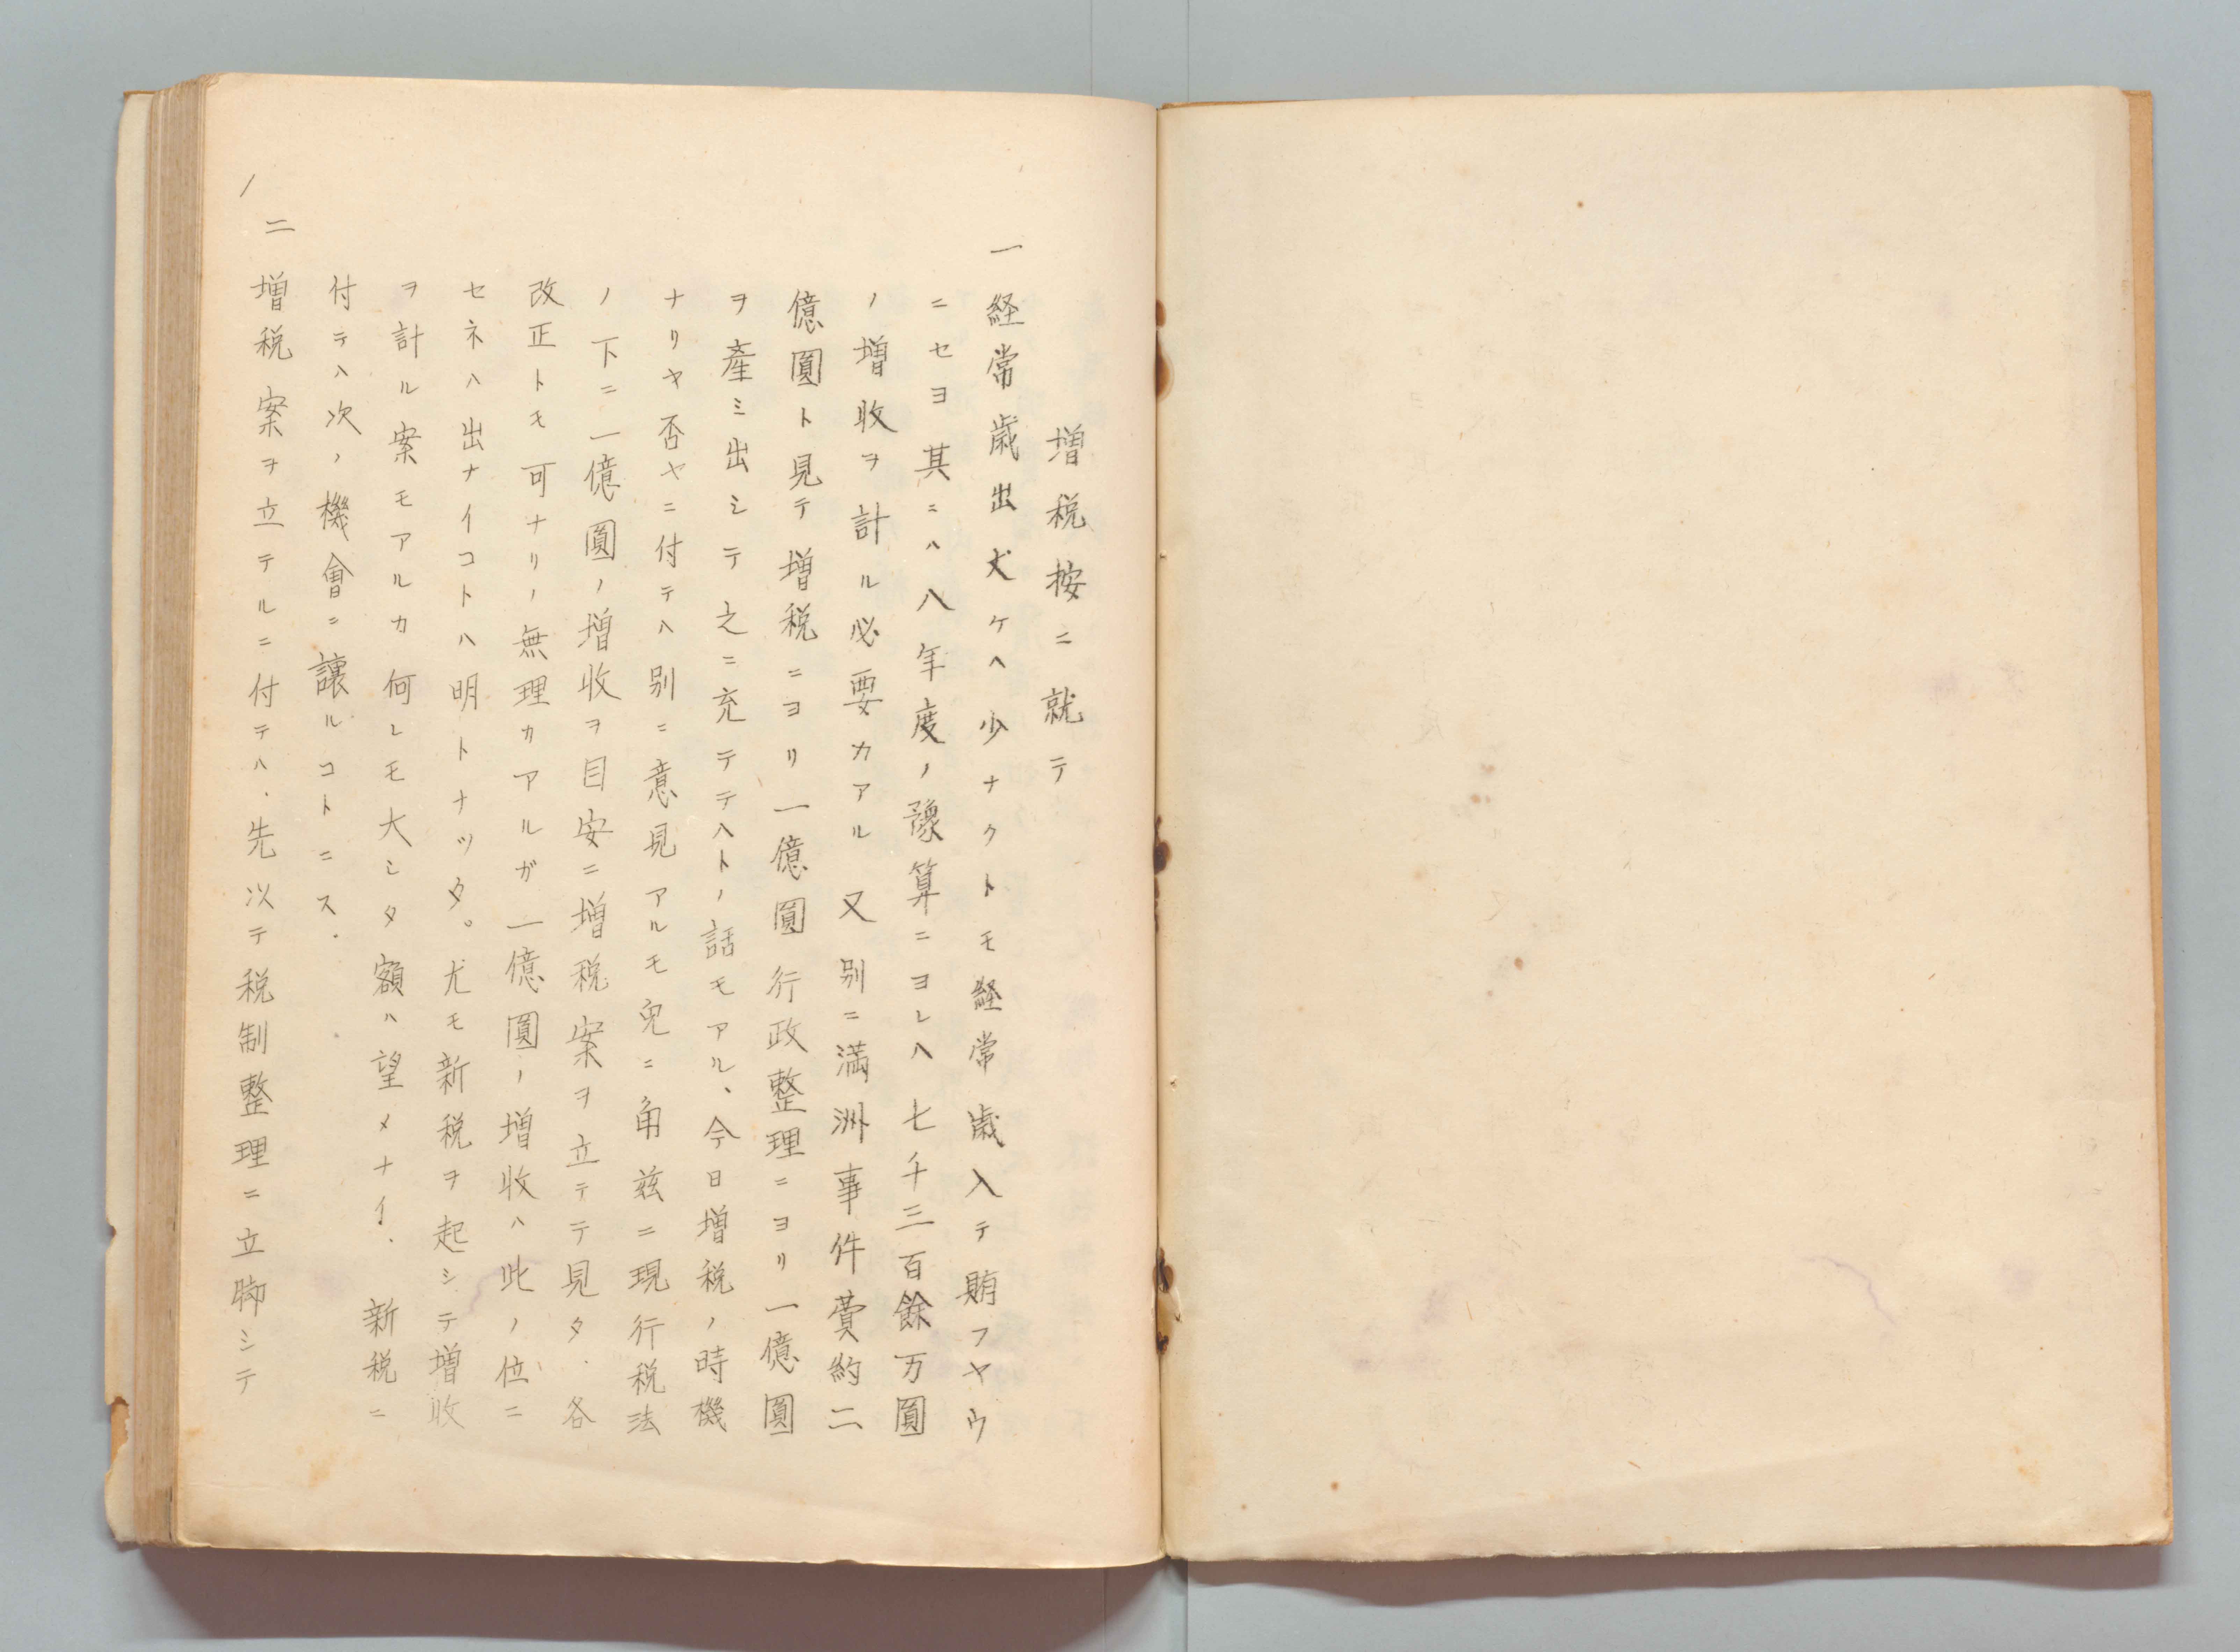 増税按ニ就テ
一経常歳出丈ケヘ少ナクトモ経常歳入テ賄フヤウ
ニセヨ其ニハ八年度ノ豫算ニヨレハ七千三百餘万圓
ノ増收ヲ計ル必要カアル又別ニ満洲事件費約二
億圓ト見テ増税ニヨリ一億圓行政整理ニヨリ一億圓
ヲ產ミ出シテ之ニ充テテハトノ話モアル、今日増税ノ時機
ナリヤ否ヤニ付テハ別ニ意見アルモ兎ニ角玆ニ現行税法
ノ下ニ一億圓ノ増收ヲ目安ニ増税案ヲ立テテ見タ.各
改正トモ可ナリノ無理カアルガ一億圓ノ増收ハ此ノ位ニ
セネハ出ナイコトハ明トナツタ。尤モ新税ヲ起シテ増收
ヲ計ル案モアルカ何レモ大シタ額ハ望メナイ.新税ニ
付テハ次ノ機會ニ讓ルコトニス.
二増税案ヲ立テルニ付テハ、先以テ税制整理ニ立脚シテ